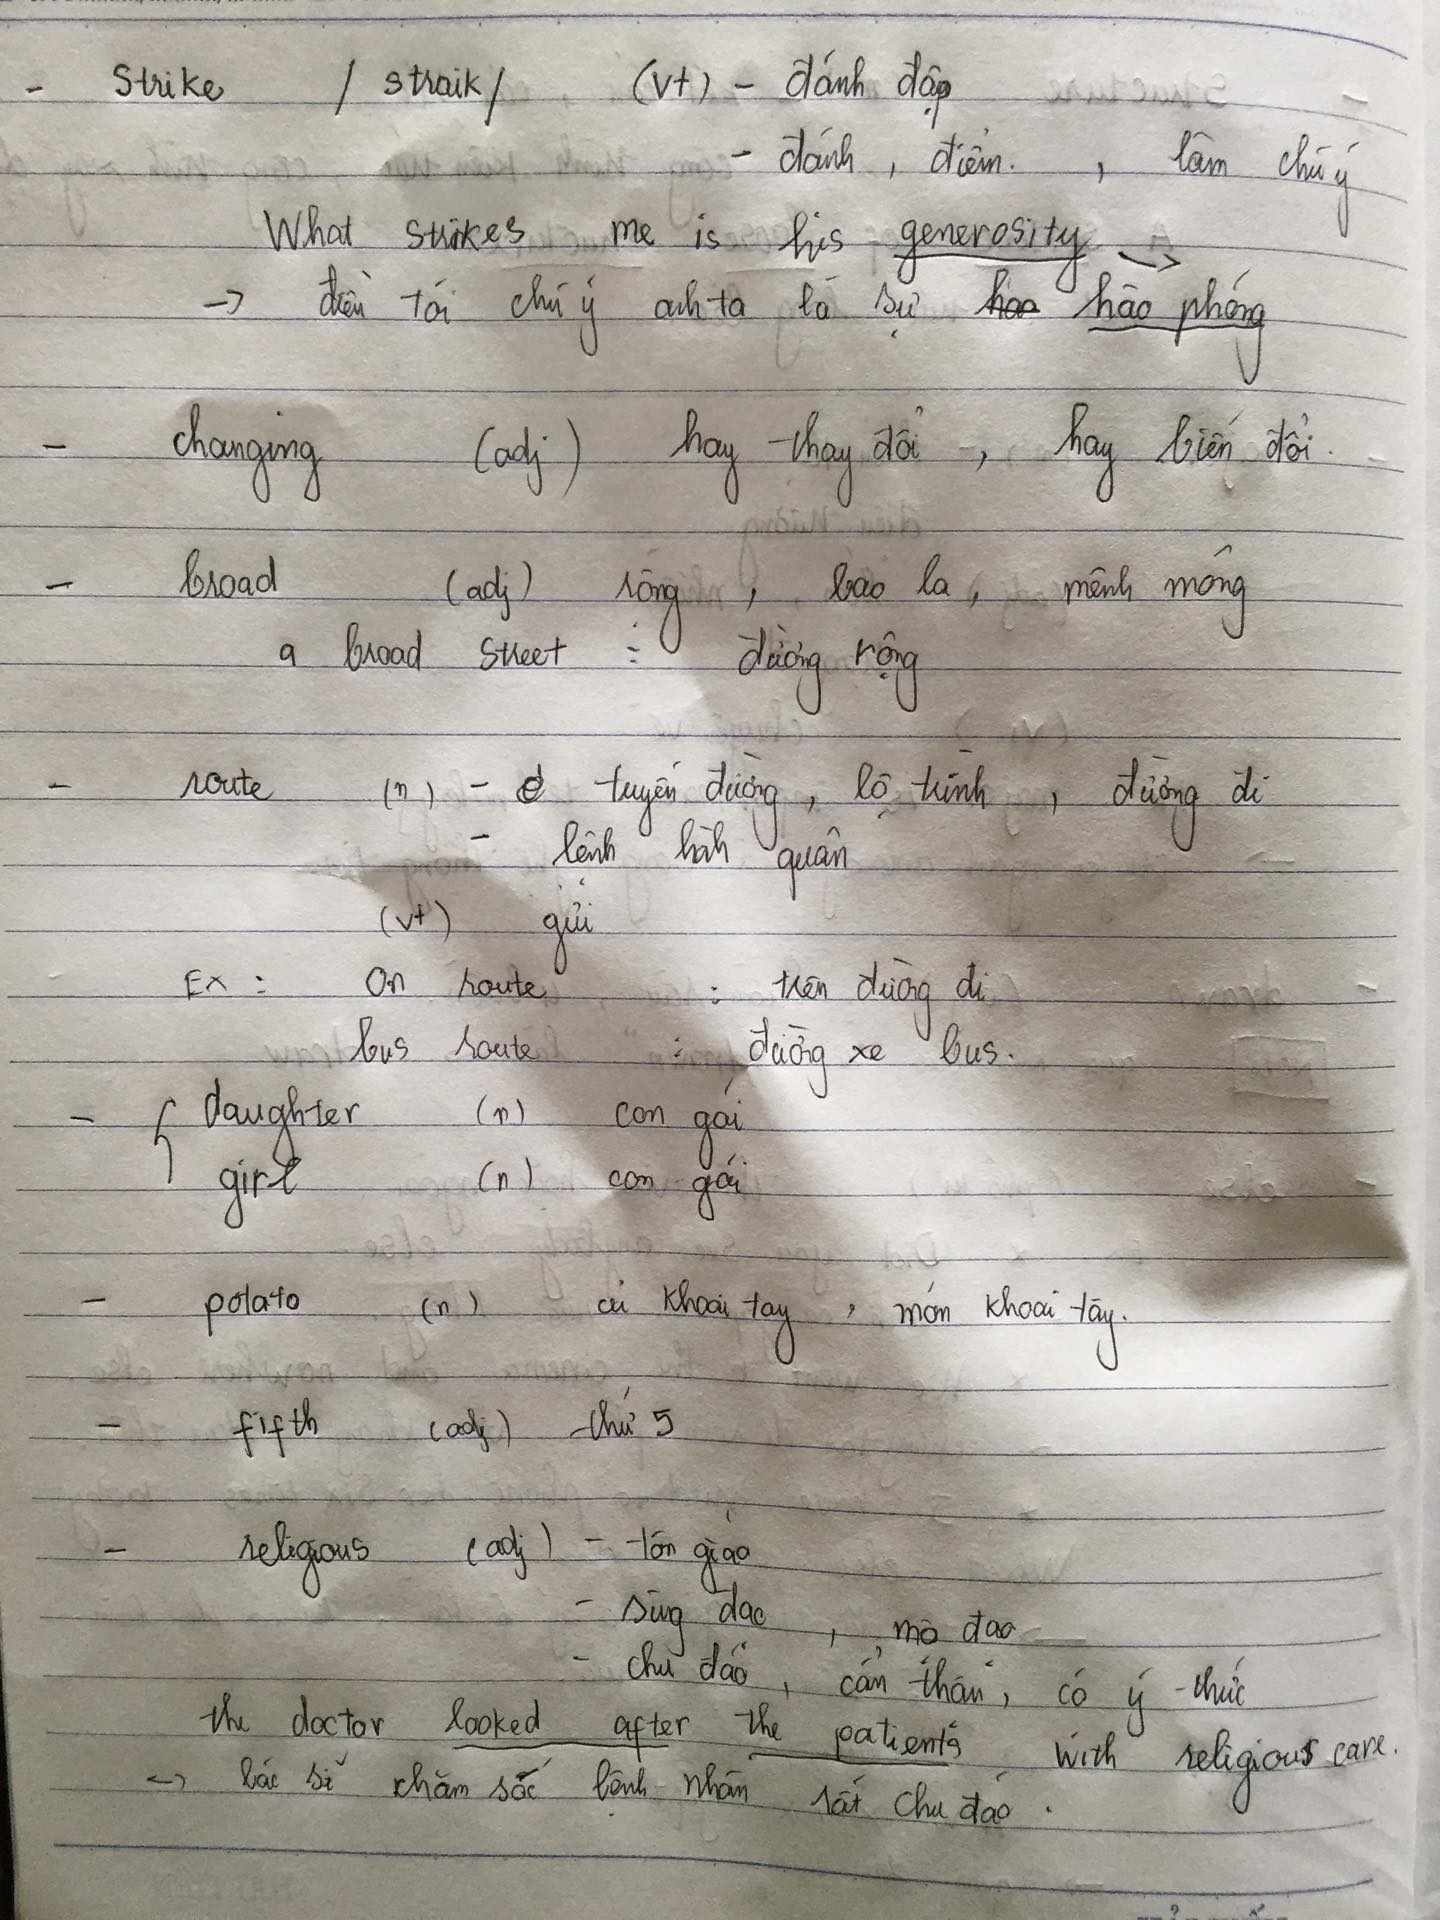 - Strike / straik / (vt) - đánh đập
- đánh, điểm. , làm chú ý
What strikes me is his generosity
→ điều tôi chú ý anh ta là sự hào phóng
- changing (adj) hay thay đổi, hay biến đổi.
- broad (adj) rông, bao la, mênh mông
a broad street : đường rộng
- route (n) - tuyến đường, lộ trình, đường đi
- lệnh hàh quân
(vt) gửi
Ex : On route : trên đường đi
bus route : đường xe bus.
- daughter (n) con gái
girl (n) con gái
- potato (n) củ khoai tay, món khoai tây.
- fifth (adj) thứ 5
- religious (adj) - tôn giáo
- sùng đạo, mộ đạo
- chu đáo, cẩn thận, có ý thức
the doctor looked after the patients with religious care.
→ bác sĩ chăm sóc bệnh nhân rất chu đáo.